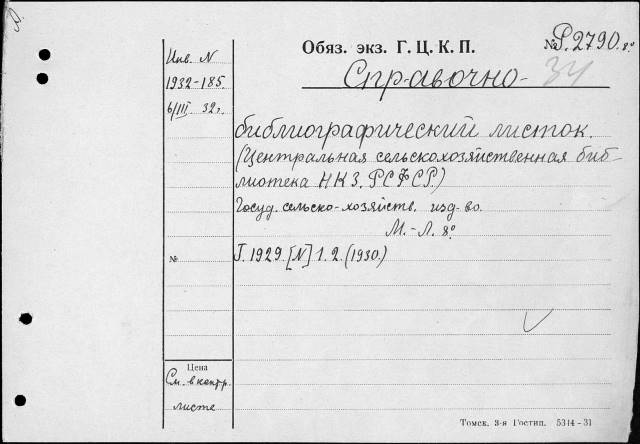 Обяз. экз. Г. Ц. К. П.
№ Р. 2790. 8°
34
Инв. N
1932-185.
6/III 32 г.
Справочно-
библиографический листок.
(Центральная сельскохозяйственная биб-
лиотека НКЗ. РСФСР.)
Госуд. сельско-хозяйств. изд-во.
М.-Л. 8°
№
Г. 1929. [N] 1. 2. (1930.)
Цена
См. в контр.
листе
Томск. 3-я Гостип. 5314-31